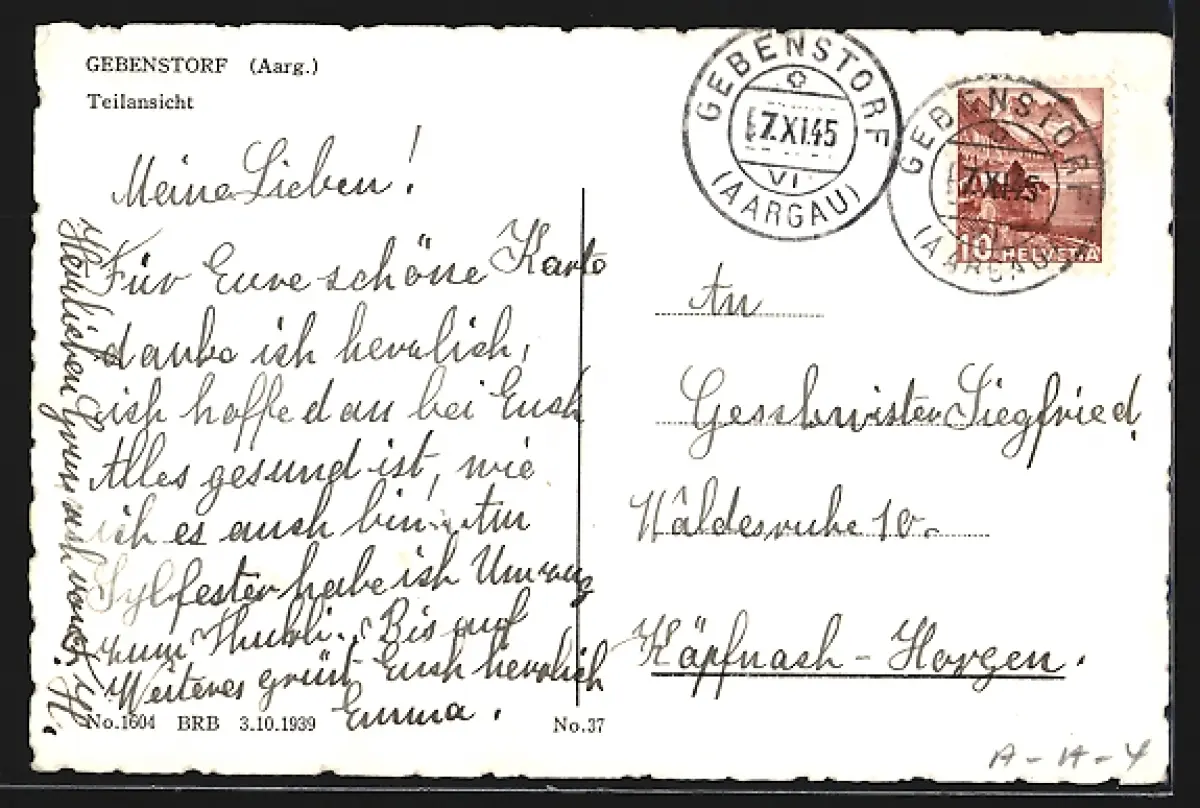 GEBENSTORF (Aarg.)
Teilansicht
GEBENSTORF
7.XI.45
VI
(AARGAU)
GEBENSTORF
7.XI.45
(AARGAU)
10 HELVETIA
Meine Lieben!
Für Eure schöne Karte
danke ich herzlich,
ich hoffe dau bei Euch
Alles gesund ist, wie
ich es auch bin. Am
Sylfester habe ich
zum Bis auf
Weiteres grüst Euch herzlich
Emma.
Herzlichen Gruss auch von
An
Geschwister Siegfried
Wâldesruhe 10.
Käpfnach - Horgen.
No.1604 BRB 3.10.1939
No.37
A-H-4